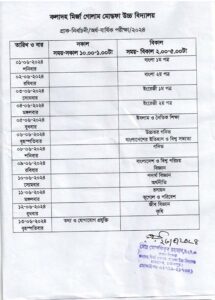 কলাদহ মির্জা গোলাম মোস্তফা উচ্চ বিদ্যালয়
প্রাক-নির্বাচনী/অর্ধ-বার্ষিক পরীক্ষা/২০২৪
তারিখ ও বার সকাল বিকাল
সময়-সকাল ১০.০০-১.০০টা সময়-বিকাল ২.০০-৫.০০টা
০১-০৬-২০২৪ বাংলা ১ম পত্র
শনিবার
০২-০৬-২০২৪ বাংলা ২য় পত্র
রবিবার
০৩-০৬-২০২৪ ইংরেজী ১ম পত্র
সোমবার
০৪-০৬-২০২৪ ইংরেজী ২য় পত্র
মঙ্গলবার
০৫-০৬-২০২৪ ইসলাম ও নৈতিক শিক্ষা
বুধবার
০৬-০৬-২০২৪ উচ্চতর গণিত
বৃহস্পতিবার বাংলাদেশের ইতিহাস ও বিশ্ব সভ্যতা
০৮-০৬-২০২৪ গণিত
শনিবার
০৯-০৬-২০২৪ বাংলাদেশ ও বিশ্ব পরিচয়
রবিবার বিজ্ঞান
১০-০৬-২০২৪ পদার্থ বিজ্ঞান
সোমবার অর্থনীতি
১১-০৬-২০২৪ রসায়ন
মঙ্গলবার ভূগোল ও পরিবেশ
১২-০৬-২০২৪ জীব বিজ্ঞান
বুধবার কৃষি
১৩-০৬-২০২৪ তথ্য ও যোগাযোগ প্রযুক্তি
বৃহস্পতিবার